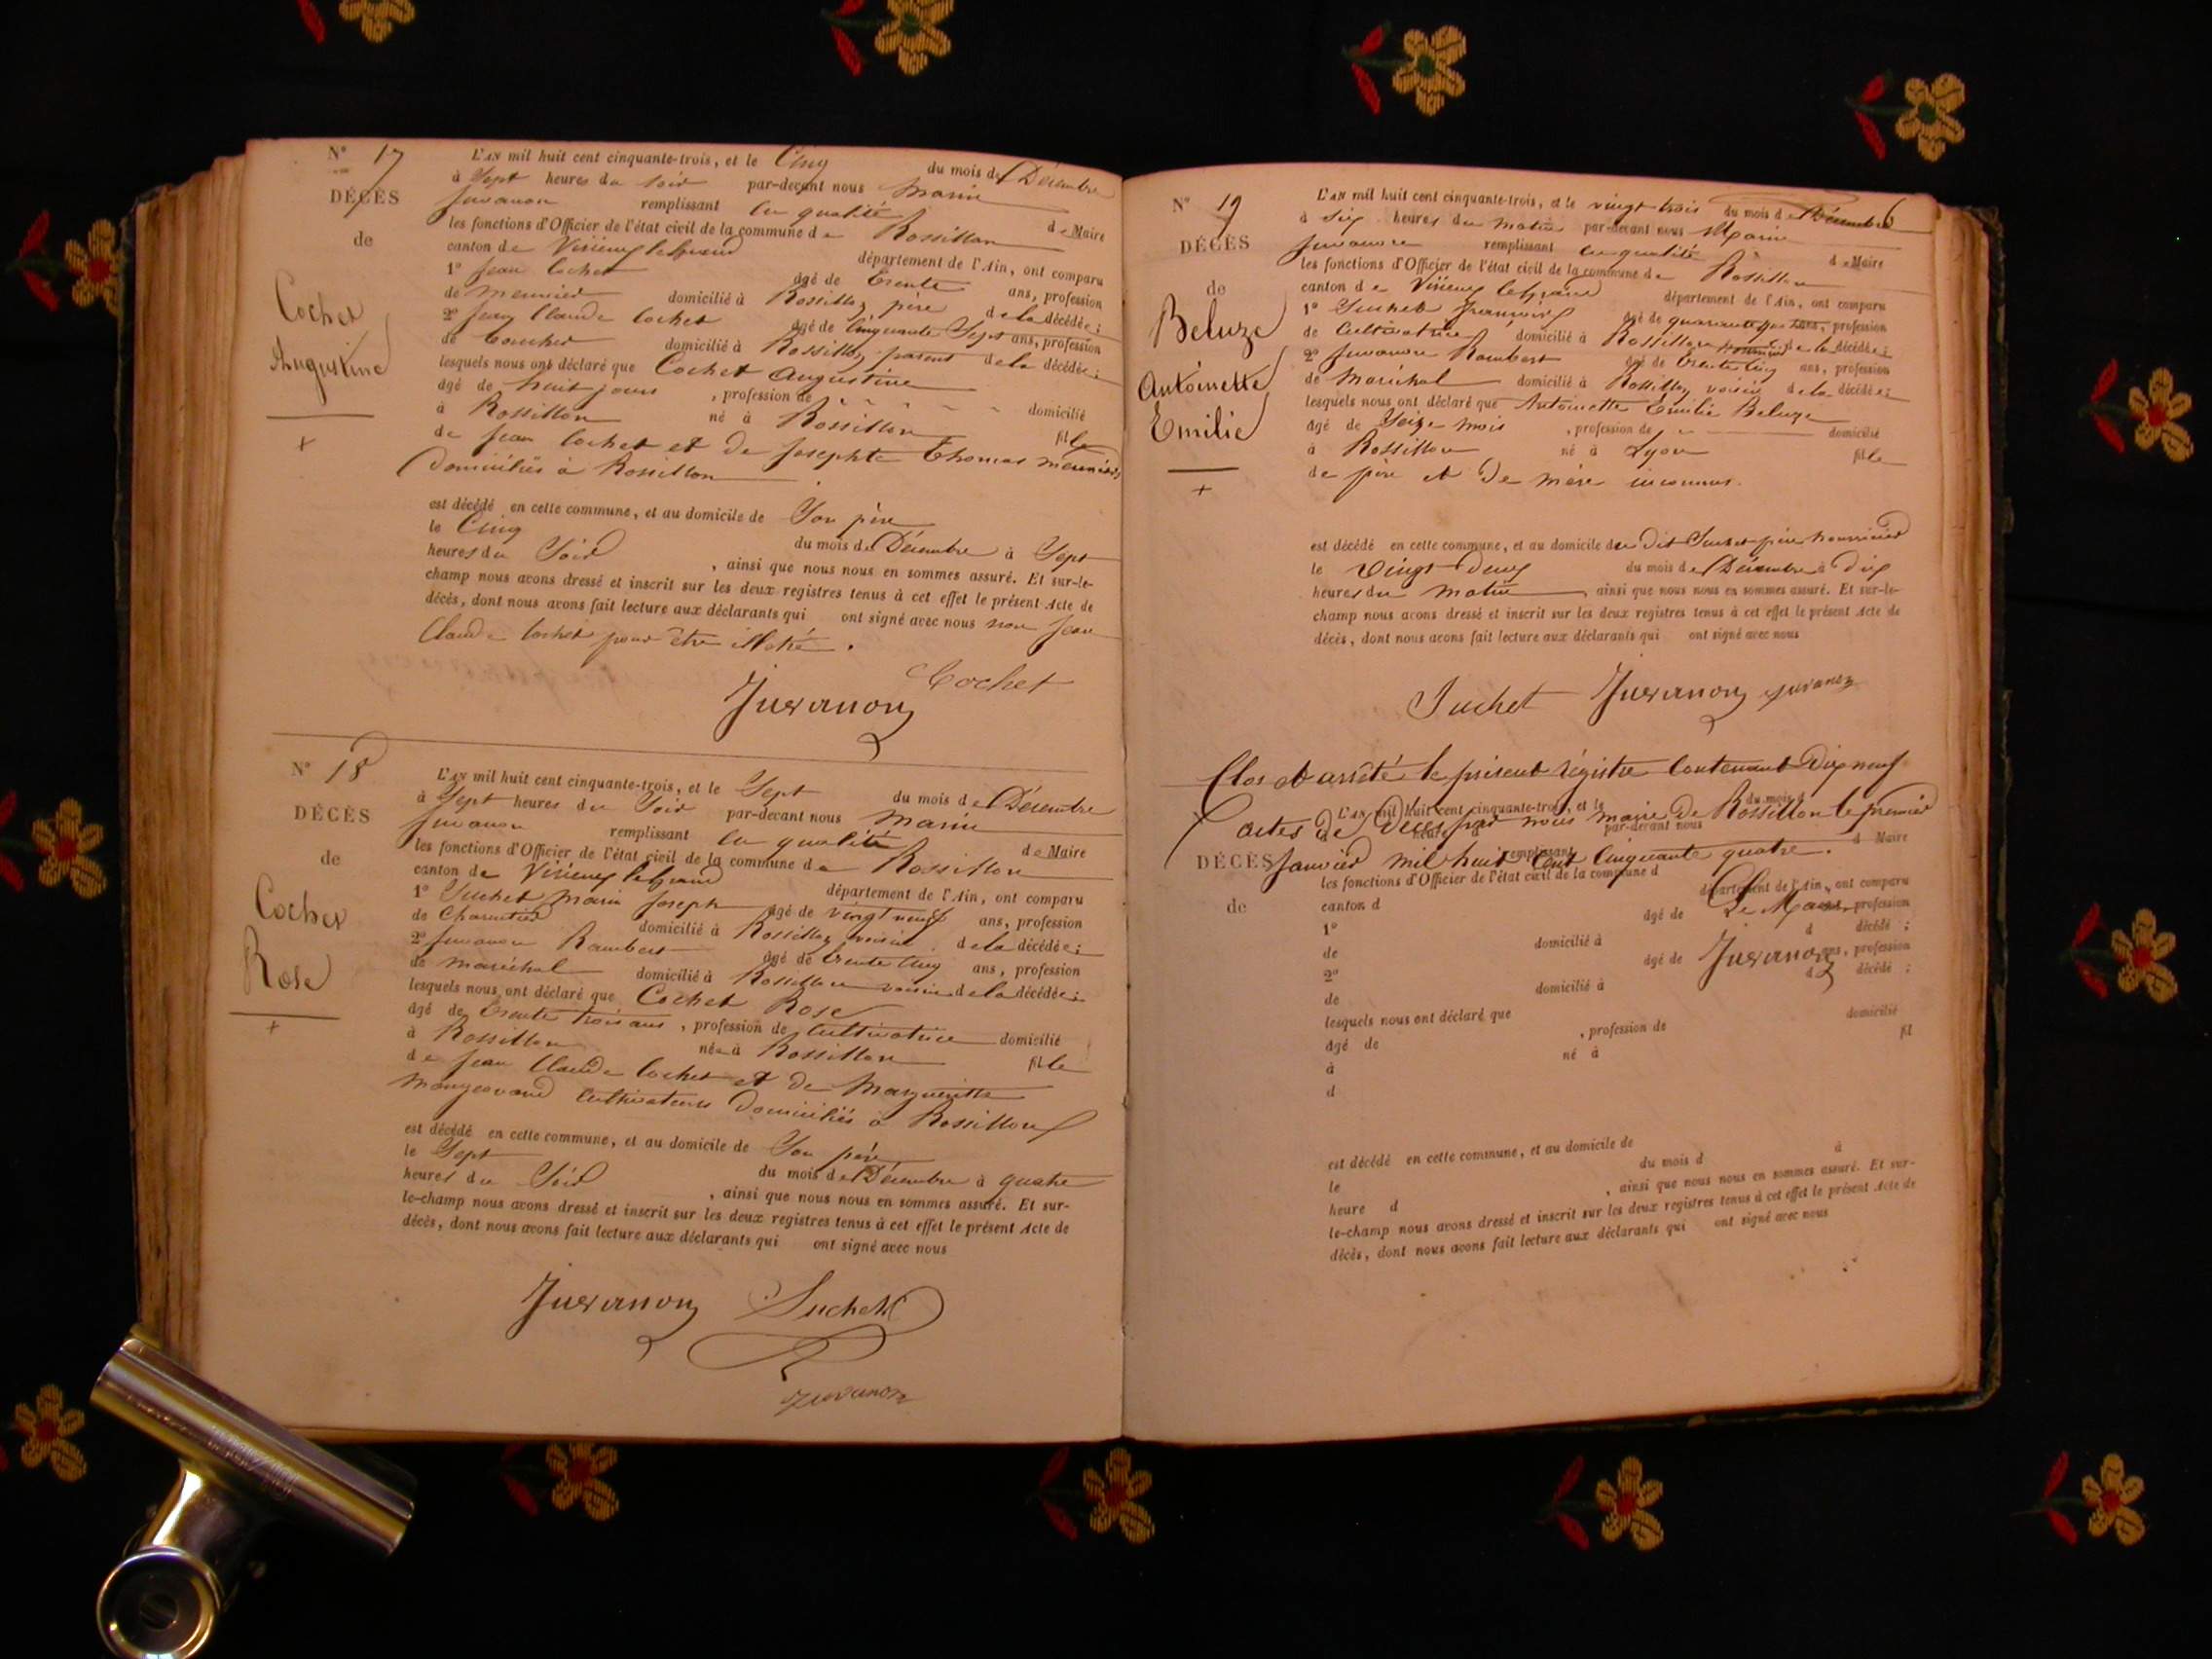 N° 17
DÉCÈS
de
Cochet
Augustine
+
L'AN mil huit cent cinquante-trois, et le Cinq du mois de Décembre
à Sept heures du soir par-devant nous Marin
Juvanon remplissant en qualité de Maire
les fonctions d'Officier de l'état civil de la commune de Rossillon
canton de Virieu le grand département de l'Ain, ont comparu
1° Jean Cochet âgé de trente ans, profession
de meunier domicilié à Rossillon père de la décédée ;
2° Jean Claude Cochet âgé de cinquante Sept ans, profession
de domicilié à Rossillon parent de la décédée ;
lesquels nous ont déclaré que Cochet Augustine
âgé de huit jours , profession de domicilié
à Rossillon né à Rossillon fille
de Jean Cochet et de Josephte Thomas meuniers
Domiciliés à Rossillon
est décédé en cette commune, et au domicile de Son père
le Cinq du mois de Décembre à Sept
heures du Soir , ainsi que nous nous en sommes assuré. Et sur-le-
champ nous avons dressé et inscrit sur les deux registres tenus à cet effet le présent Acte de
décès, dont nous avons fait lecture aux déclarants qui ont signé avec nous non Jean
Claude Cochet pour être illétré.
Cochet
Juvanon
N° 18
DÉCÈS
de
Cochet
Rose
+
L'AN mil huit cent cinquante-trois, et le Sept du mois de Décembre
à Sept heures du Soir par-devant nous Marin
Juvanon remplissant en qualité de Maire
les fonctions d'Officier de l'état civil de la commune de Rossillon
canton de Virieu le grand département de l'Ain, ont comparu
1° Suchet Marin Joseph âgé de vingt neuf ans, profession
de Charpentier domicilié à Rossillon voisin de la décédée ;
2° Juvanon Rambert âgé de trente cinq ans, profession
de maréchal domicilié à Rossillon voisin de la décédée ;
lesquels nous ont déclaré que Cochet Rose
âgé de trente trois ans , profession de Cultivatrice domicilié
à Rossillon née à Rossillon fille
de Jean Claude Cochet et de Margueritte
Cultivateurs Domiciliés à Rossillon
est décédé en cette commune, et au domicile de Son père
le Sept du mois de Décembre à quatre
heures du Soir , ainsi que nous nous en sommes assuré. Et sur-
le-champ nous avons dressé et inscrit sur les deux registres tenus à cet effet le présent Acte de
décès, dont nous avons fait lecture aux déclarants qui ont signé avec nous
Juvanon Suchet
Juvanon
N° 19
DÉCÈS
de
Beluze
Antoinette
Emilie
+
L'AN mil huit cent cinquante-trois, et le vingt trois du mois de Décembre
à dix heures du matin par-devant nous Marin
Juvanon remplissant en qualité de Maire
les fonctions d'Officier de l'état civil de la commune de Rossillon
canton de Virieu le grand département de l'Ain, ont comparu
1° Suchet François âgé de quarante ans, profession
de Cultivatrice domicilié à Rossillon de la décédée ;
2° Juvanon Rambert âgé de trente cinq ans, profession
de Maréchal domicilié à Rossillon voisin de la décédée ;
lesquels nous ont déclaré que Antoinette Emilie Beluze
âgé de Seize mois , profession de domicilié
à Rossillon né à Lyon fille
de père et de mère inconnus.
est décédé en cette commune, et au domicile du dit Suchet père nourricier
le Vingt Deux du mois de Décembre à Dix
heures du matin ainsi que nous nous en sommes assuré. Et sur-le-
champ nous avons dressé et inscrit sur les deux registres tenus à cet effet le présent Acte de
décès, dont nous avons fait lecture aux déclarants qui ont signé avec nous
Suchet Juvanon Juvanon
Clos et arrêté le présent régistre Contenant Dix neuf
L'AN mil huit cent cinquante-trois, et le du mois d
actes de Décès par nous maire de Rossillon le premier
par-devant nous
remplissant d Maire
DÉCÈS
Janvier mil huit Cent Cinquante quatre.
les fonctions d'Officier de l'état civil de la commune d
de
canton d département de l'Ain, ont comparu
Le Maire
1° âgé de ans, profession
de domicilié à d décédé ;
Juvanon
2° âgé de ans, profession
de domicilié à d décédé ;
lesquels nous ont déclaré que
âgé de , profession de domicilié
à né à fil
d
est décédé en cette commune, et au domicile de
le du mois d à
heure d , ainsi que nous nous en sommes assuré. Et sur-
le-champ nous avons dressé et inscrit sur les deux registres tenus à cet effet le présent Acte de
décès, dont nous avons fait lecture aux déclarants qui ont signé avec nous